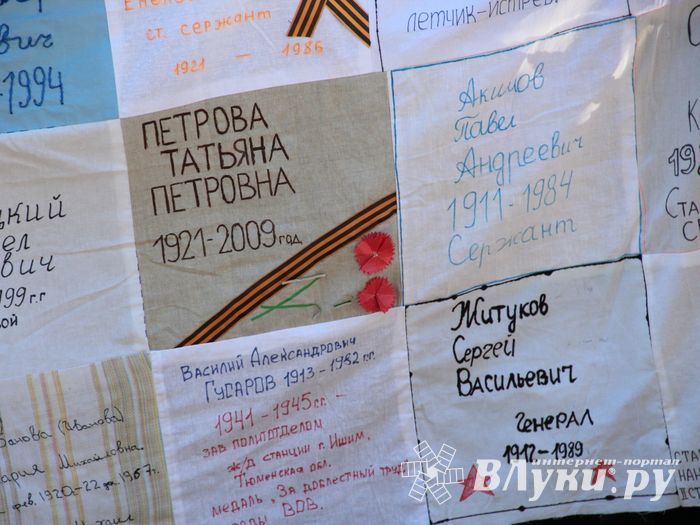 ович
-1994
ст. сержант
1921 - 1986
летчик-истреб
ПЕТРОВА
ТАТЬЯНА
ПЕТРОВНА
1921-2009год
Акимов
Павел
Андреевич
1911-1984
Сержант
цкий
ел
ович
999г.г
вой
Житуков
Сергей
Васильевич
генерал
1917-1989
Василий Александрович
Гусаров 1913-1982 г.г.
1941-1945г.г. —
зав политотделом
ж/д станции г. Ишим.
Тюменская обл.
медаль "За доблестный труд
годы ВОВ.
(Иванова)
Мария Михайловна
фев. 1920г.-22 дек 1967г.
Ста
интернет-портал
ВЛуки.ру